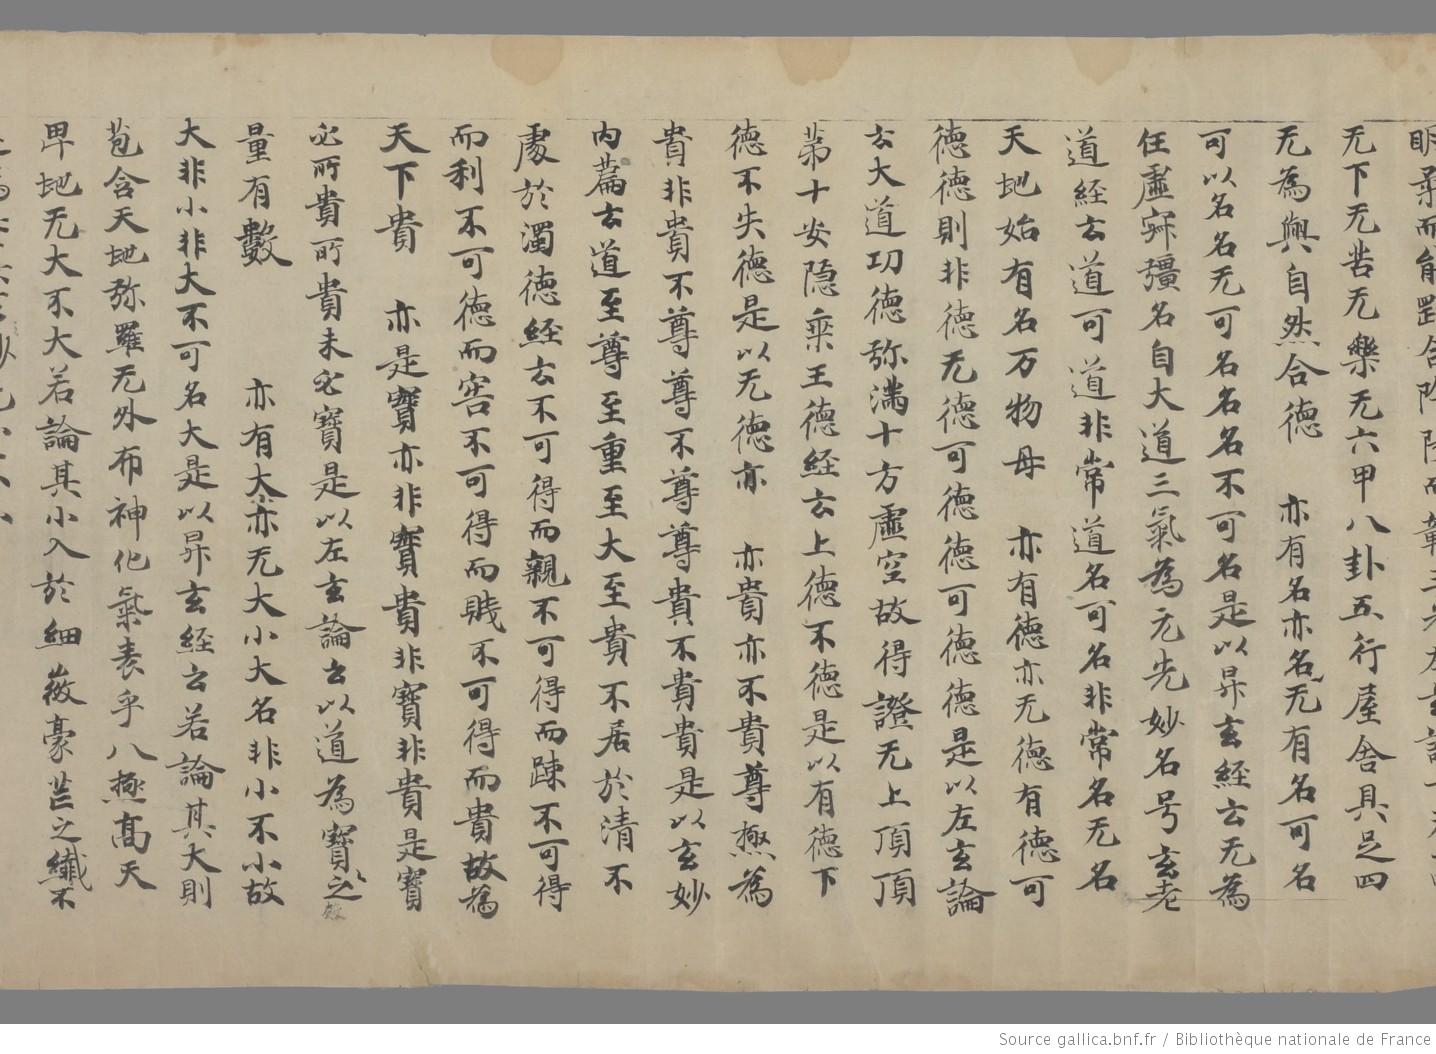 无下无苦无樂无六甲八卦五行屋舍具足四
无為與自然合德 亦有名亦名无有名可名
可以名名无可名名名不可名是以昇玄經云无為
任虛寂彊名自大道三氣為元先妙名号玄老
道經云道可道非常道名可名非常名无名
天地始有名万物母 亦有德亦无德有德可
德德則非德无德可德德可德德是以左玄論
云大道功德弥滿十方虛空故得證无上頂頂
苐十安隱乘王德經云上德不德是以有德下
德不失德是以无德亦 亦貴亦不貴尊極為
貴非貴不尊尊尊不尊尊貴不貴貴是以玄妙
內篇云道至尊至重至大至貴不居於清不
處於濁德經云不可得而親不可得而踈不可得
而利不可德而害不可得而賤不可得而貴故為
天下貴 亦是寶亦非寶貴非寶非貴是寶
必所貴所貴未必寶是以左玄論云以道為寶之
量有數 亦有大小亦无大小大名非小不小故
大非小非大不可名大是以昇玄經云若論其大則
苞含天地弥羅无外布神化氣表乎八極髙天
卑地无大不大若論其小入於細微豪芒之纖不